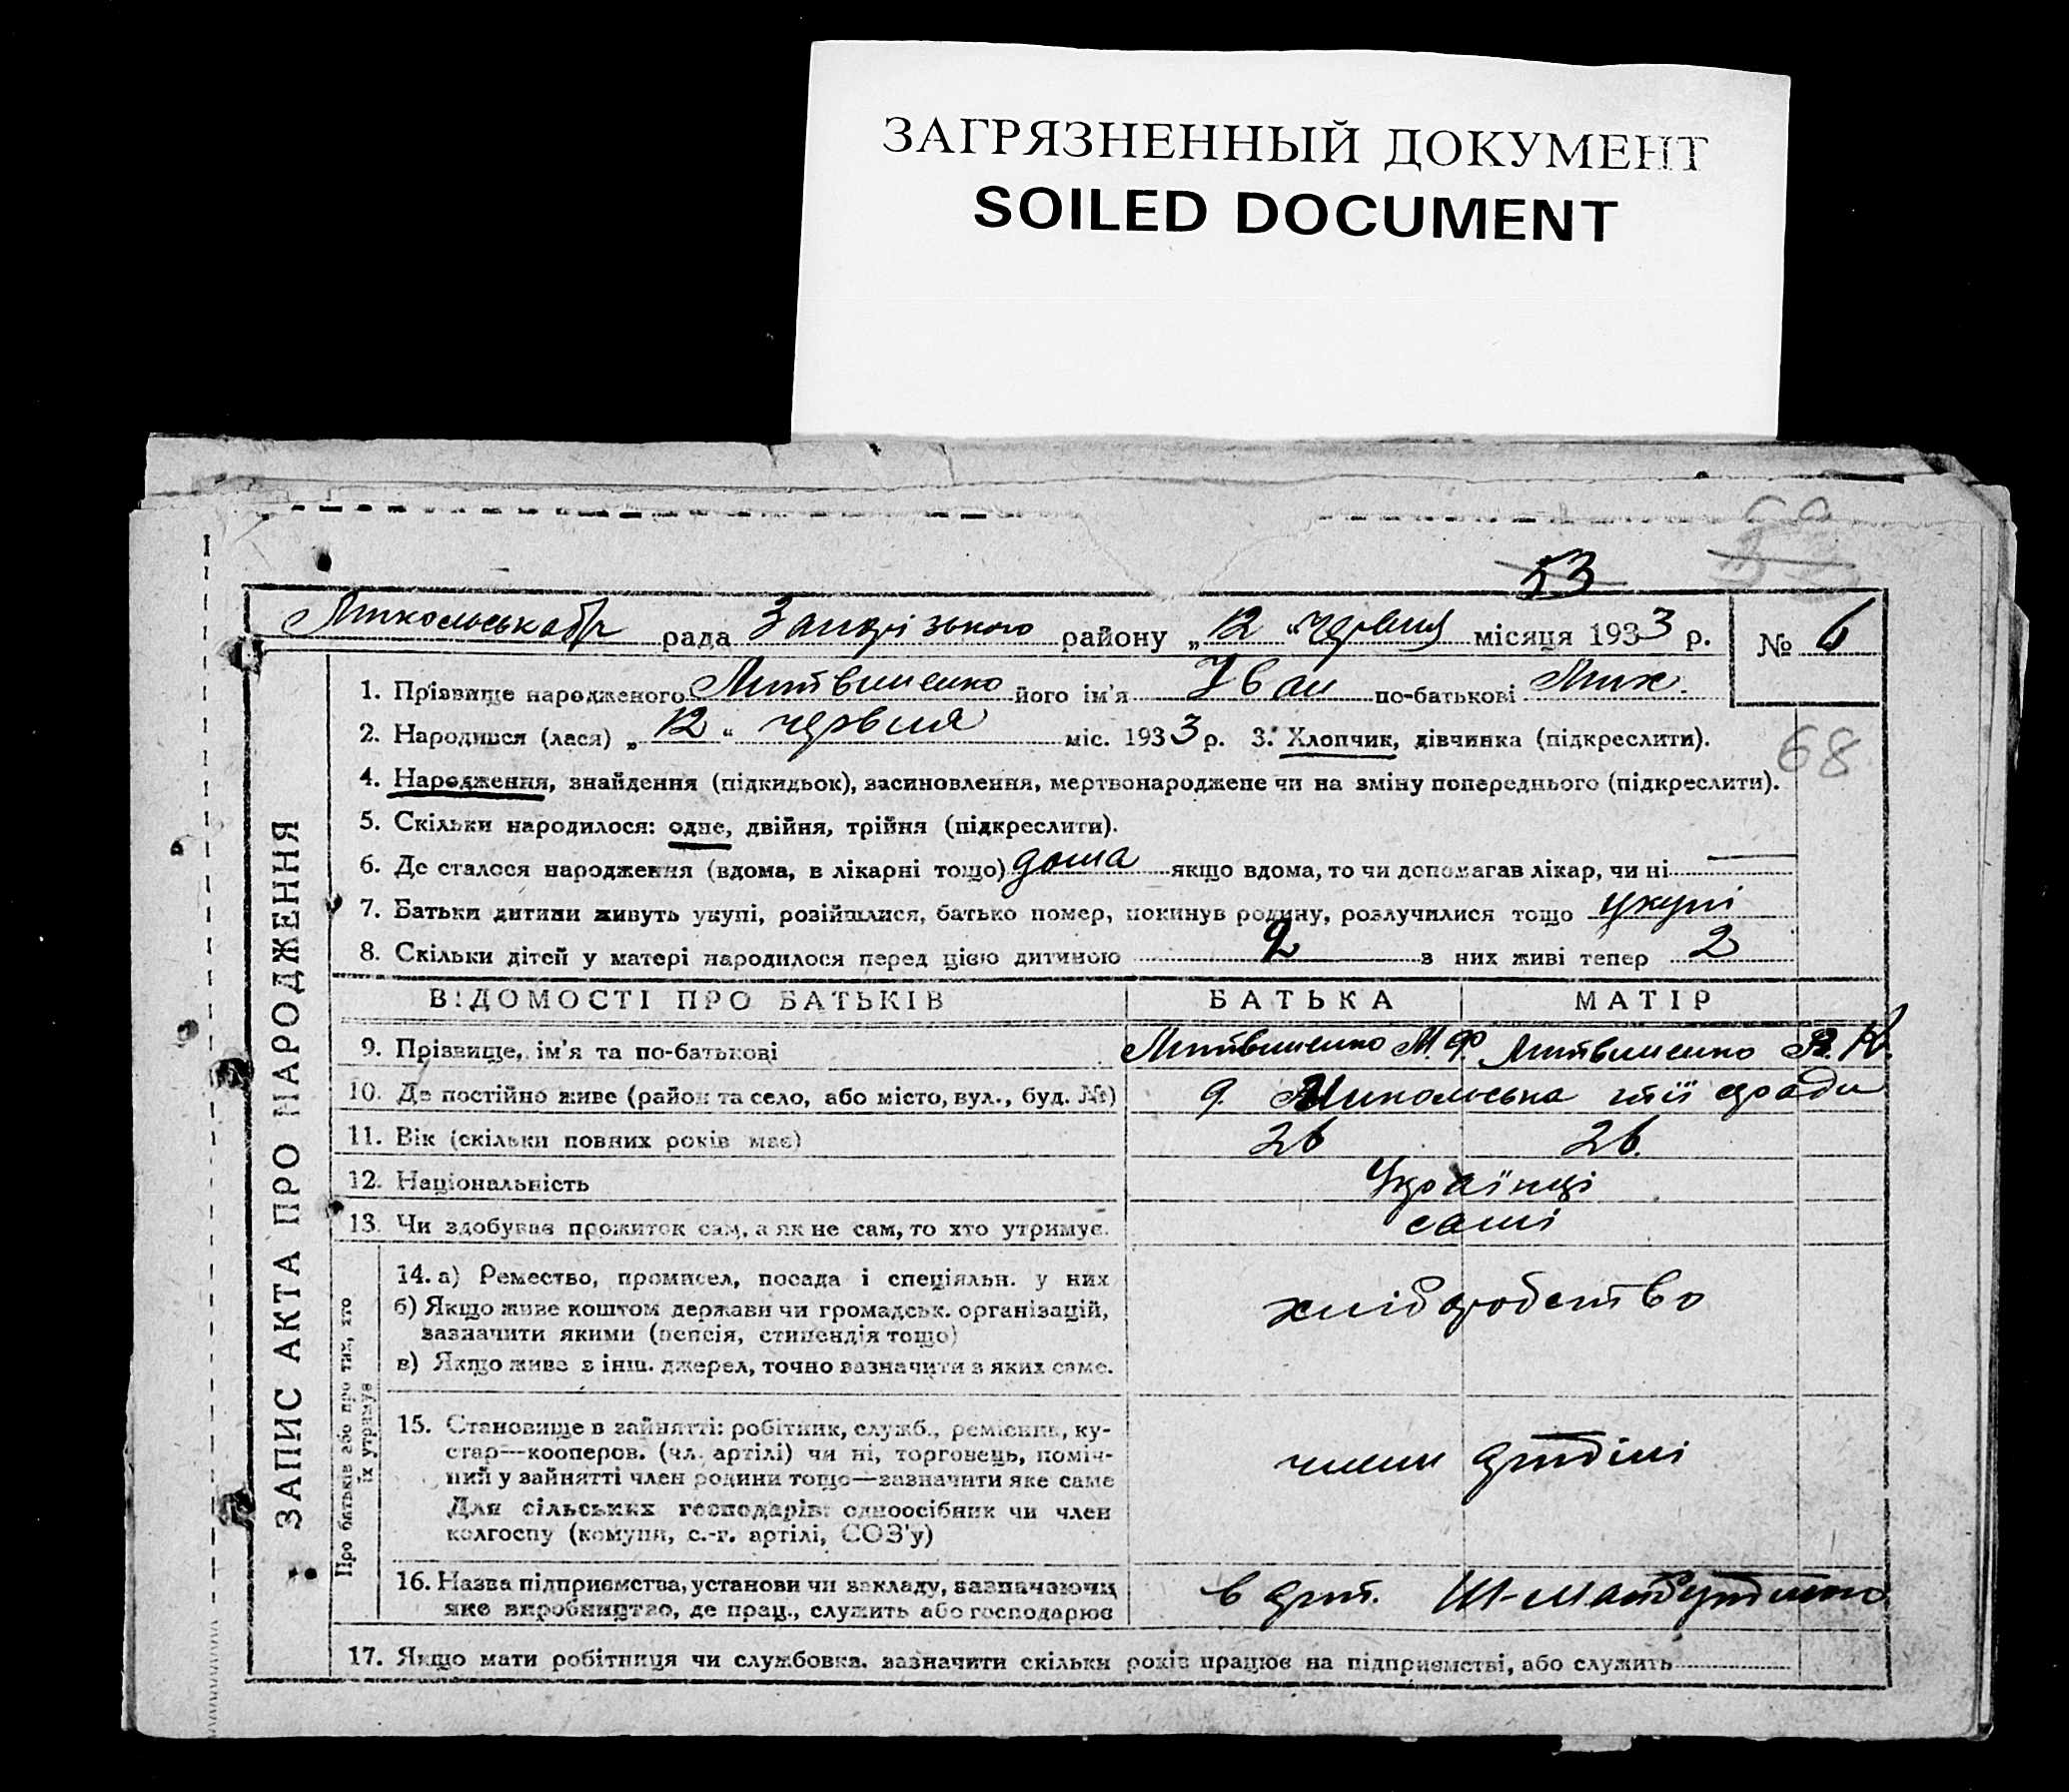 ЗАГРЯЗНЕННЫЙ ДОКУМЕНТ
SOILED DOCUMENT
53
рада Запорізького району „12“ червня місяця 1933 р. № 6
1. Прізвище народженого Литвиненко його ім'я Іван по-батькові Мих.
2. Народився (лася) „12“ червня міс. 1933 р. 3. Хлопчик, дівчинка (підкреслити).
68
4. Народження, знайдення (підкидьок), засиновлення, мертвонароджене чи на зміну попереднього (підкреслити).
5. Скільки народилося: одне, двійня, трійня (підкреслити).
6. Де сталося народження (вдома, в лікарні тощо) дома якщо вдома, то чи допомагав лікар, чи ні —
7. Батьки дитини живуть укупі, розійшлися, батько помер, покинув родину, розлучилися тощо укупі
8. Скільки дітей у матері народилося перед цією дитиною 2 з них живі тепер 2
ЗАПИС АКТА ПРО НАРОДЖЕННЯ
ВІДОМОСТІ ПРО БАТЬКІВ БАТЬКА МАТІР
9. Прізвище, ім'я та по-батькові Литвиненко М. Ф. Литвиненко В. К.
10. Де постійно живе (район та село, або місто, вул., буд. №) Микольська тії ради
11. Вік (скільки повних років має) 26 26.
12. Національність Українці
13. Чи здобуває прожиток сам, а як не сам, то хто утримує. самі
Про батьків або про тих, хто їх утримує
14. а) Ремество, промисел, посада і спеціяльн. у них
б) Якщо живе коштом держави чи громадськ. організацій,
зазначити якими (пенсія, стипендія тощо)
в) Якщо живе з інш. джерел, точно зазначити з яких саме.
хліборобство
15. Становище в зайнятті: робітник, служб., ремісник, ку-
стар—кооперов. (чл. артілі) чи ні, торговець, поміч-
ний у зайнятті член родини тощо—зазначити яке саме
Для сільських господарів: одноосібник чи член
колгоспу (комуни, с.-г. артілі, СОЗ'у)
члени артілі
16. Назва підприємства, установи чи закладу, зазначаючи
яке виробництво, де прац., служить або господарює
в арт.
17. Якщо мати робітниця чи службовка, зазначити скільки років працює на підприємстві, або служить